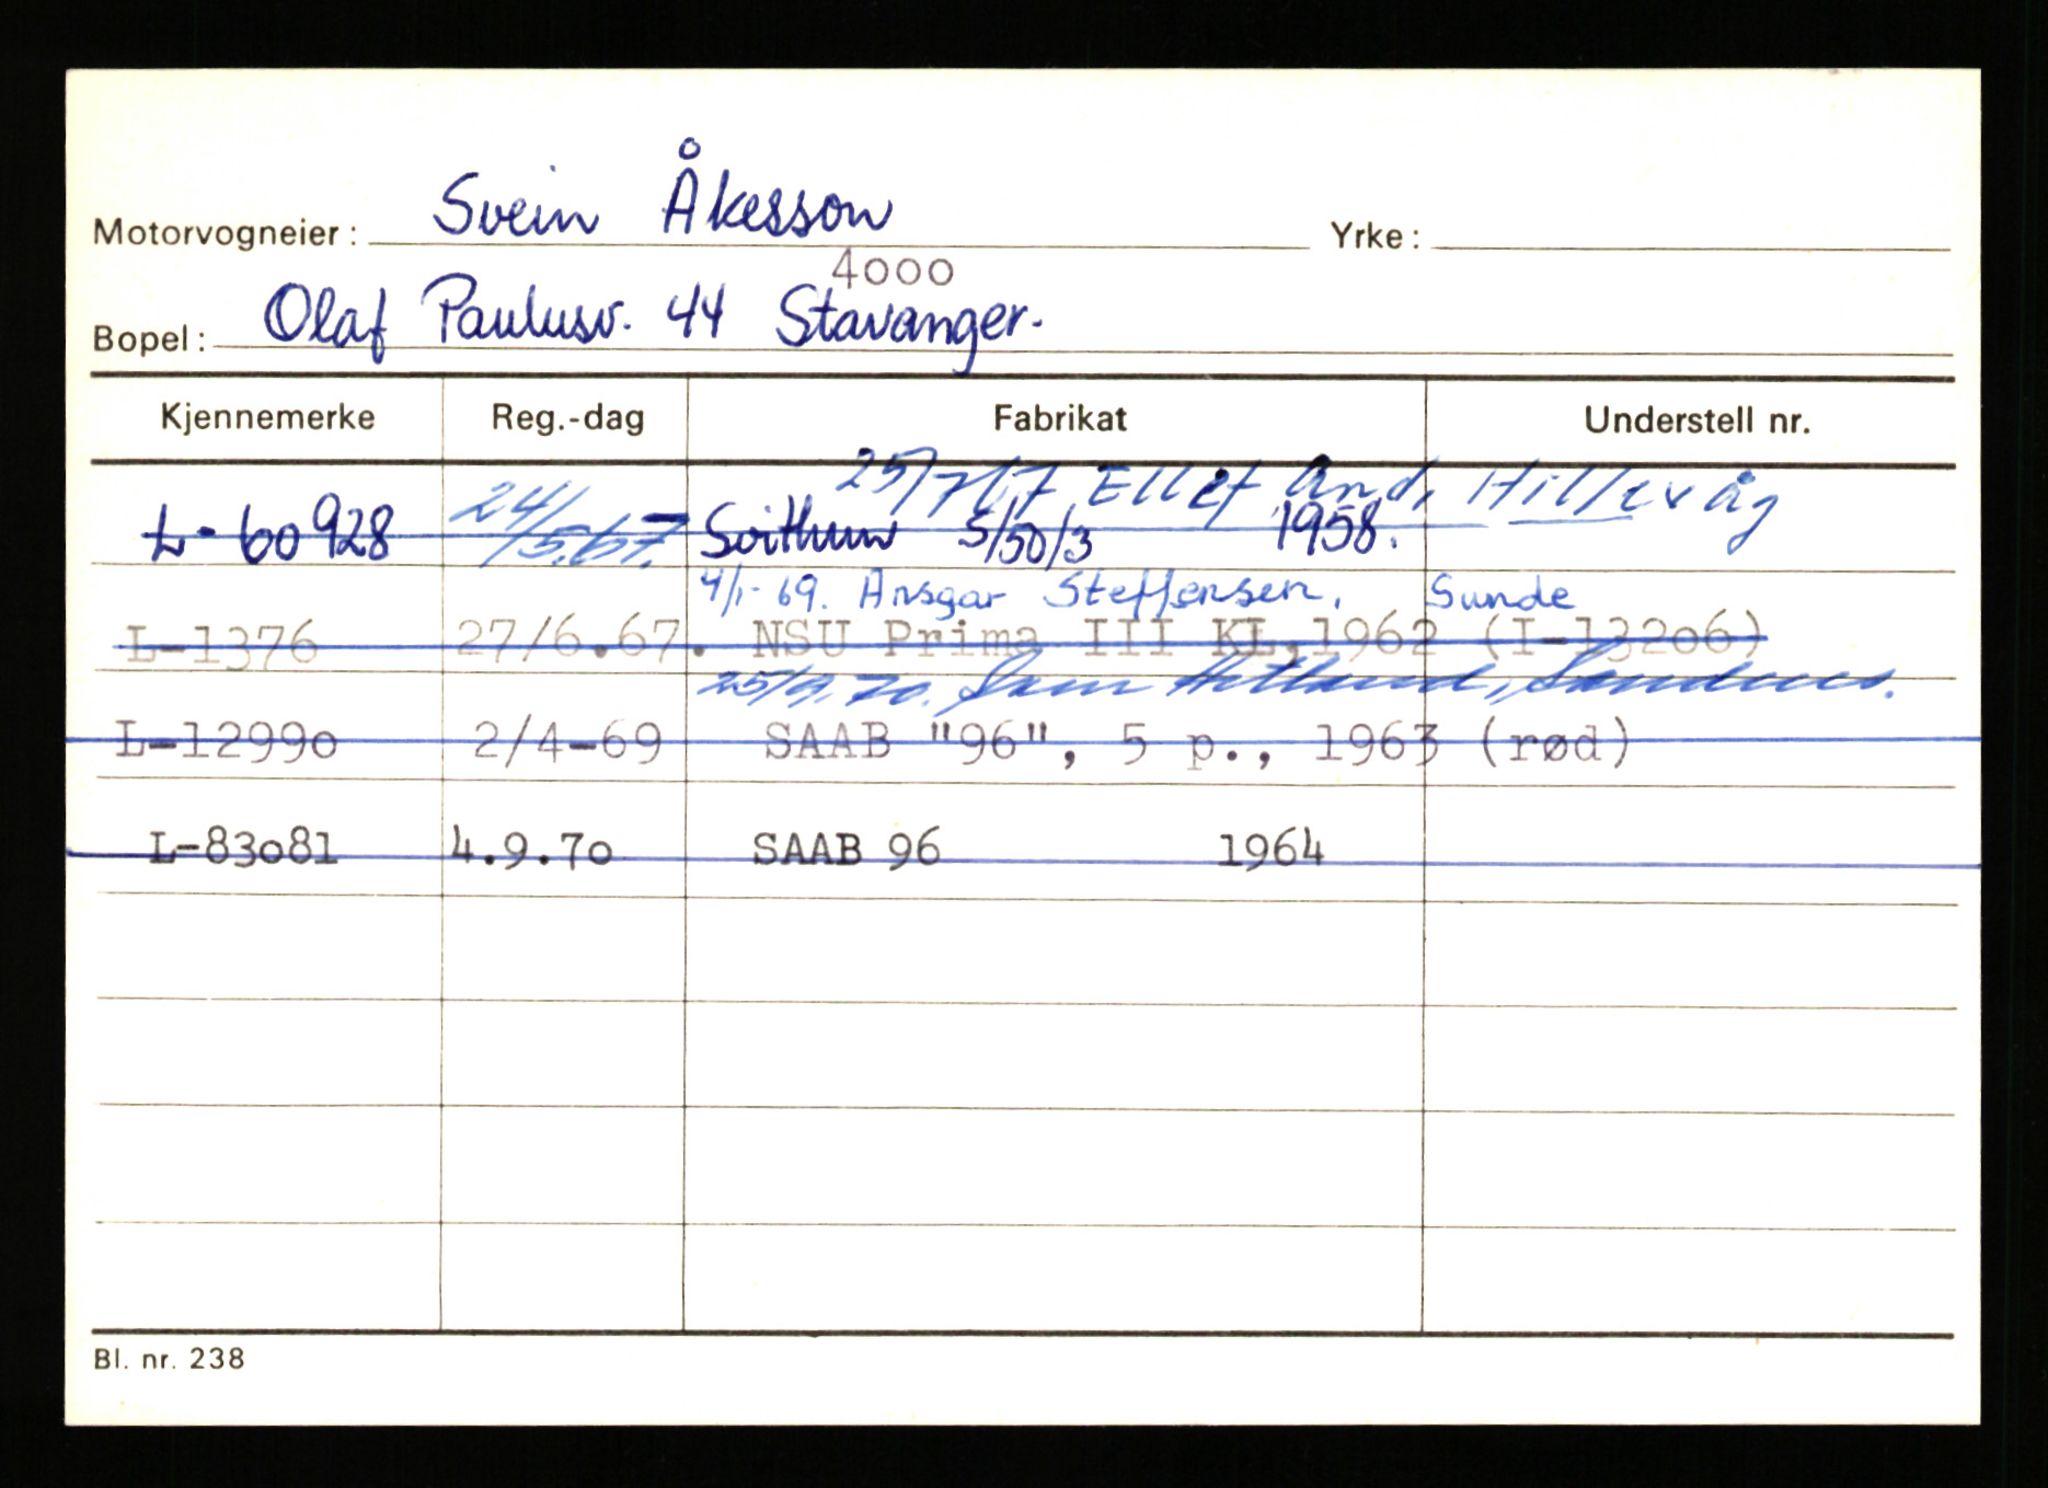 Motorvogneier: Svein Åkesson Yrke:
4000
Bopel: Olaf Paulusv. 44 Stavanger.
Kjennemerke Reg.-dag Fabrikat Understell nr.
25/7 67 Ellef And. Hillevåg
L-60928 24/5.67. Svithun S/50/3 1958.
4/1-69. Ansgar Steffensen, Sunde
L-1376 27/6.67. NSU Prima III KL,1962 (I-13206)
25/9.70. Hetland, Sandnes.
L-12990 2/4-69 SAAB "96", 5 p., 1963 (rød)
L-83081 4.9.70 SAAB 96 1964
Bl. nr. 238